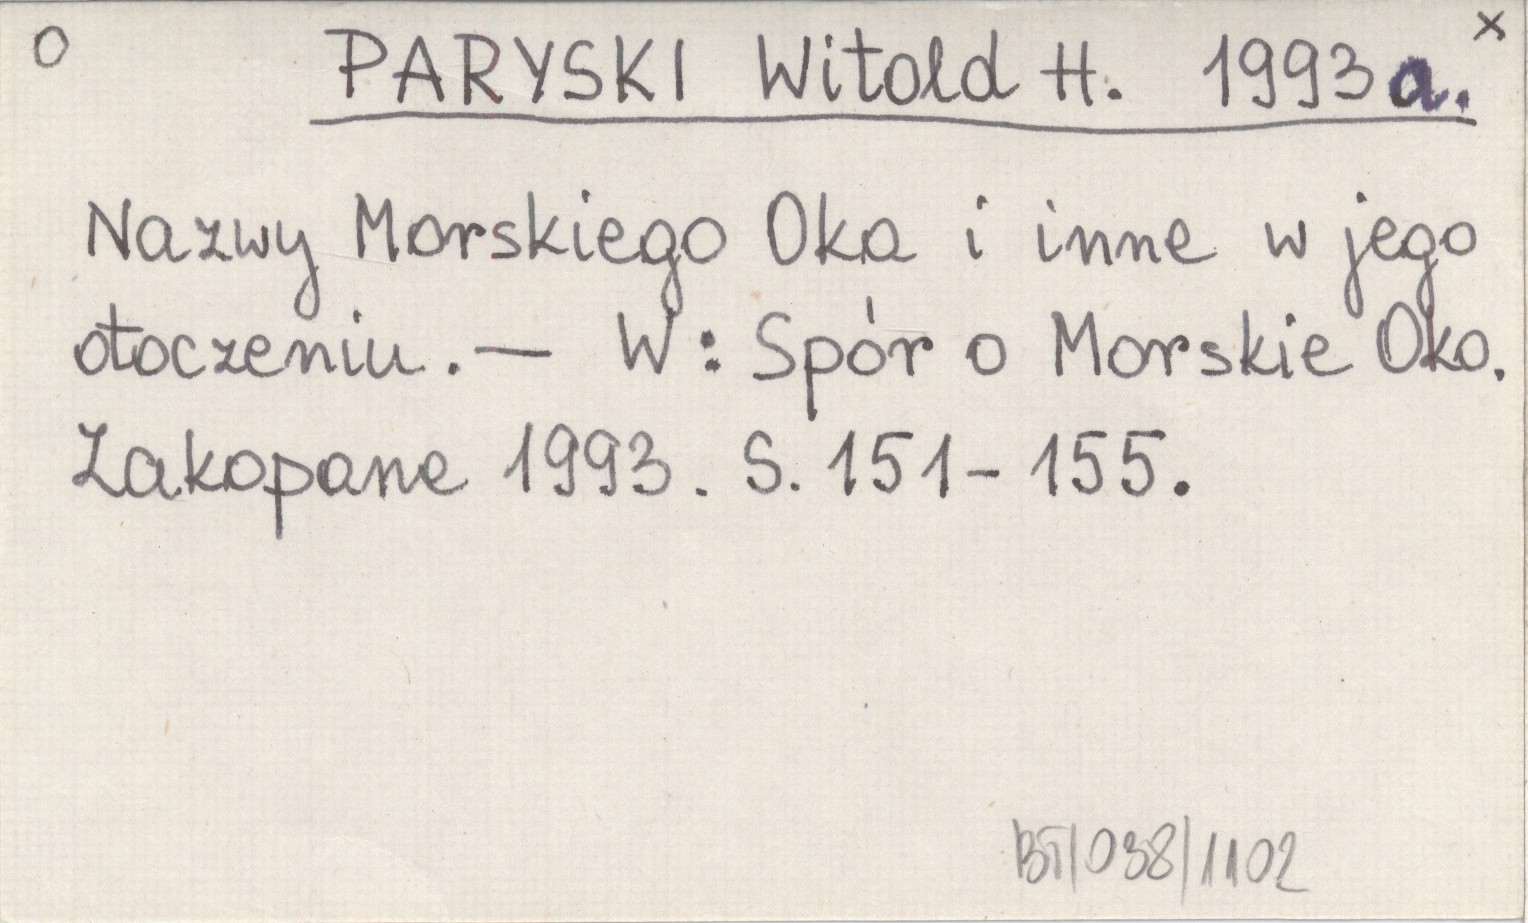 O PARYSKI Witold H. 1993a. x
Nazwy Morskiego Oka i inne w jego
otoczeniu. — W: Spór o Morskie Oko.
Zakopane 1993. S. 151-155.
BT/038/1102